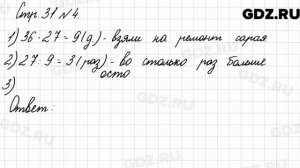 GDZ.RU
Стр. 31 №4
1) 36-27=9(д)- взяли на ремонт сарая
2) 27:9=3(раз)- во столько раз больше
осто
3)
Ответ: